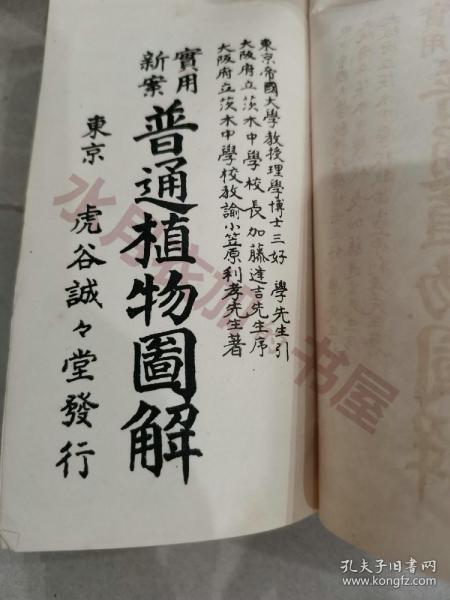 東京帝國大學教授理學博士三好 學先生引
大阪府立茨木中學校長加藤逹吉先生序
大阪府立茨木中學校教諭小笠原利孝先生著
實用
新案
普通植物圖解
東京 虎谷誠々堂發行
孔夫子旧书网
www.kongfz.com